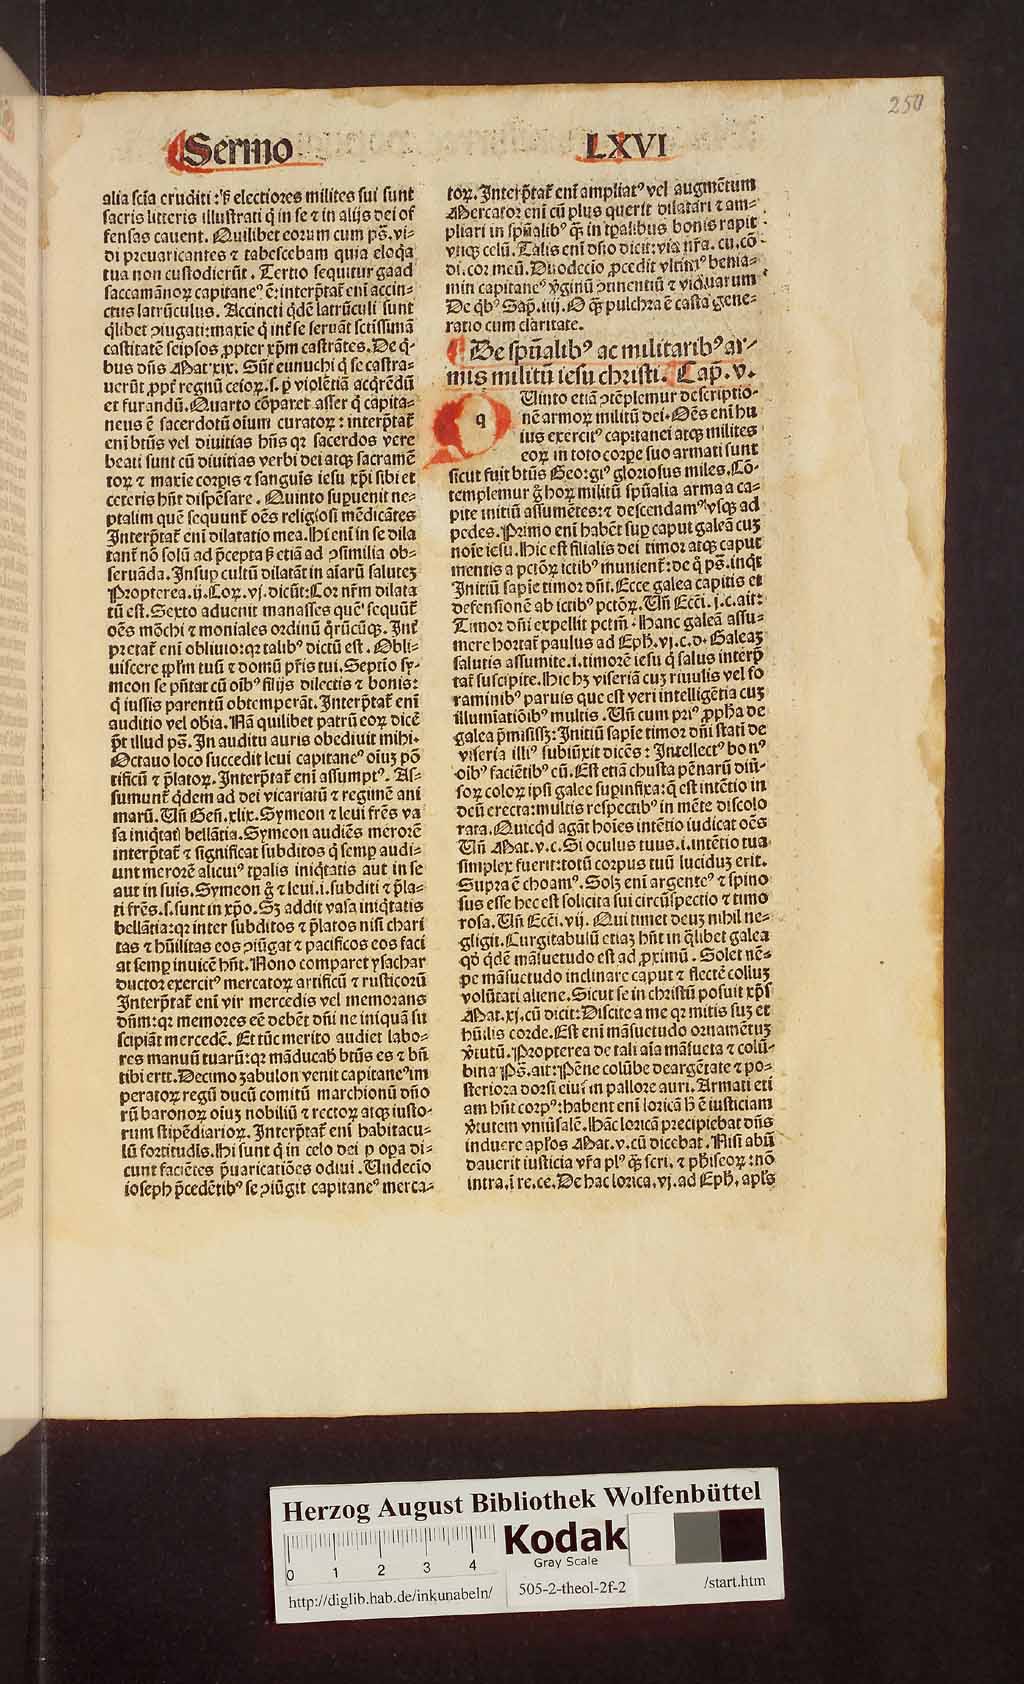 250
Sermo LXVI
alia scia eruditi :ꝫ electiores milites sui sunt
sacris litteris illustrati q̇ in se ⁊ in alijs dei of
fensas cauent. Quilibet eorum cum ps̄. vi-
di preuaricantes ⁊ tabescebam quia eloq̄a
tua non custodierūt. Tertio sequitur gaad
saccamānoꝝ capitaneꝰ ē: interp̄tat̄ eni accin-
ctus latrūculus. Accincti q̇dē latrūculi sunt
q̇libet ↄiugati: maxie q̇ int̄ se seruāt sctissimā
castitatē seipsos ꝓpter xp̄m castrātes. De q̇-
bus dn̄s Mat xix. Sūt eunuchi q̇ se castra-
uerūt ꝓpt̄ regnū celoꝝ. s. ꝑ violētiā acq̇rēdū
et furandū. Quarto cōparet aser q̇ capita-
neus ē sacerdotū oium curatoꝝ: interp̄tat̄
eni bt̄us vel diuitias hn̄s qꝛ sacerdos vere
beati sunt cū diuitias verbi dei atqꝫ sacramē
toꝝ ⁊ maxie corꝑis ⁊ sanguīs iesu xp̄i sibi et
ceteris hn̄t dispēsare. Quinto supuenit ne-
ptalim quē sequunt̄ oēs religiosi mēdicātes
Interp̄tat̄ eni dilatatio mea. Hi eni in se dila
tant̄ nō solū ad p̄cepta ꝫ etiā ad ↄsimilia ob-
seruāda. Insuꝑ cultū dilatāt in aīaꝝ salutez
Propterea .ij. Coꝝ. vj. dicūt: Cor nr̄m dilata
tū est. Sexto aduenit manasses quē sequūt̄
oēs mōchi ⁊ moniales ordinū q̇rūcūqꝫ. Int̄
pretat̄ eni obliuio: qꝛ talibꝰ dictū est. Obli-
uiscere ꝓpl̄m tuū ⁊ domū pr̄is tui. Septīo sy-
meon se pn̄tat cū oībꝰ filijs dilectis ⁊ bonis:
q̇ iussis parentū obtemperāt. Interp̄tat̄ eni
auditio vel obīa. Nā quilibet patrū eoꝝ dicē
pt̄ illud ps̄. In auditu auris obediuit mihi.
Octauo loco succedit leui capitaneꝰ oīuꝫ pō
tificū ⁊ p̄latoꝝ. Interp̄tat̄ eni assumptꝰ. As-
sumunt̄ q̇dem ad dei vicariatū ⁊ regimē ani
marū. Un̄ Gen̄. xlix. Symeon ⁊ leui frēs va
sa iniq̇tat̄ bellātia. Symeon audiēs merorē
interp̄tat̄ ⁊ significat subditos q̇ semꝑ audi-
unt merorē alicuiꝰ tp̄alis iniq̇tatis aut in se
aut in suis. Symeon g̊ ⁊ leui .i. subditi ⁊ p̄la-
ti frēs. s. sunt in xp̄o. Sꝫ addit vasa iniq̇tatis
bellātia: qꝛ inter subditos ⁊ p̄latos nisi chari
tas ⁊ hūilitas eos ↄiūgat ⁊ pacificos eos faci
at semꝑ inuicē hn̄t. Nono comparet ysachar
ductor exercitꝰ mercatoꝝ artificū ⁊ rusticorū
Interp̄tat̄ eni vir mercedis vel memorans
dn̄m: qꝛ memores eē debēt dn̄i ne iniquā su
scipiāt mercedē. Et tūc merito audiet labo-
res manuū tuarū: qꝛ māducab̄ btūs es ⁊ bn̄
tibi erit. Decimo zabulon venit capitaneꝰ im
peratoꝝ regū ducū comitū marchionū dn̄o
rū baronoꝝ oīuꝫ nobiliū ⁊ rectoꝝ atqꝫ iusto-
rum stipēdiarioꝝ. Interp̄tat̄ eni habitacu-
lū fortitudis. Hi sunt q̇ in celo dei ꝑ oꝑa di-
cunt faciētes p̄uaricatiōes odiui. Undecīo
ioseph p̄cedētibꝰ se ↄiūgit capitaneꝰ merca-
toꝝ. Interp̄tat̄ eni ampliatꝰ vel augmētum
Mercator eni cū plus querit dilatari ⁊ am-
pliari in spūalibꝰ q̄ꝫ in tp̄alibus bonis rapit
vsqꝫ celū. Talis eni dn̄o dicit: via nr̄a. cu, cō-
di. cor meū. Duodecīo ꝓcedit vltimꝰ benia-
min capitaneꝰ v̄ginū ↄtinentiū ⁊ viduarum
De q̇bꝰ Sap̄. iiij. O q̄ꝫ pulchra ē casta gene-
ratio cum claritate.
De spūalibꝰ ac militaribꝰ ar-
mis militū iesu christi. Cap̄. v.
q Uinto etiā ↄtēplemur descriptio-
nē armoꝝ militū dei. Oēs eni hu
ius exercitꝰ capitanei atqꝫ milites
eoꝝ in toto corꝑe suo armati sunt
sicut fuit btūs Georgiꝰ gloriosus miles. Cō-
templemur g̊ hoꝝ militū spūalia arma a ca-
pite initiū assumētes: ⁊ descendamꝰ vsqꝫ ad
pedes. Primo eni habēt suꝑ caput galeā cuꝫ
noīe iesu. Hic est filialis dei timor atqꝫ caput
mentis a pctōꝝ ictibꝰ munient̄: de q̇ ps̄. inq̇t
Initiū sapīe timor dn̄i. Ecce galea capitis et
defensionē ab ictibꝰ pctōꝝ. Un̄ Ecci. j. c. ait:
Timor dn̄i expellit pctm̄. Hanc galeā assu-
mere hortat̄ paulus ad Eph̄. vj. c. d. Galeaꝫ
salutis assumite. i. timorē iesu q̇ salus interp̄
tat̄ suscipite. Hic hꝫ viseriā cuꝫ riuulis vel fo
raminibꝰ paruis que est veri intelligētia cuꝫ
illumīatiōibꝰ multis. Un̄ cum priꝰ ꝓph̄a de
galea p̄misisꝫ: Initiū sapīe timor dn̄i stati de
viseria illiꝰ subiūxit dicēs: Intellectꝰ bonꝰ
oībꝰ faciētibꝰ eū. Est etiā chusta pēnarū diū-
soꝝ coloꝝ ipsi galee supinfixa: q̇ est intētio in
deū erecta: multis respectibꝰ in mēte discolo
rata. Quicq̇d agāt hoīes intētio iudicat oēs
Un̄ Mat. v. c. Si oculus tuus. i. intētio tua
simplex fuerit: totū corpus tuū luciduꝫ erit.
Supra ē choamꝰ. Solꝫ eni argenteꝰ ⁊ spino
sus esse hec est solicita sui circūspectio ⁊ timo
rosa. Un̄ Ecci. vij. Qui timet deuꝫ nihil ne-
gligit. Curgitabulū etiaꝫ hn̄t in q̇libet galea
qō q̇dē māsuetudo est ad ꝓximū. Solet nē-
pe māsuetudo inclinare caput ⁊ flectē colluꝫ
volūtati aliene. Sicut se in christū posuit xp̄s
Mat. xj. cū dicit: Discite a me qꝛ mitis suꝫ et
hūilis corde. Est eni māsuetudo ornamētuꝫ
v̄tutū. Propterea de tali aīa māsueta ⁊ colū-
bina Ps̄. ait: Pēne colūbe deargētate ⁊ po-
steriora dorsi eiuꝰ in pallore auri. Armati eti
am hn̄t corpꝰ: habent eni loricā h̄ ē iusticiam
v̄tutem vniūsalē. Hāc loricā precipiebat dn̄s
induere apl̄os Mat. v. cū dicebat. Nisi abū
dauerit iusticia vr̄a plꝰ q̄ꝫ scri. ⁊ ph̄iseoꝝ: nō
intra. ī re. ce. De hac lorica. vj. ad Eph̄. apl̄s
Herzog August Bibliothek Wolfenbüttel
0 1 2 3 4
Kodak
Gray Scale
http://diglib.hab.de/inkunabeln/ 505-2-theol-2f-2 /start.htm